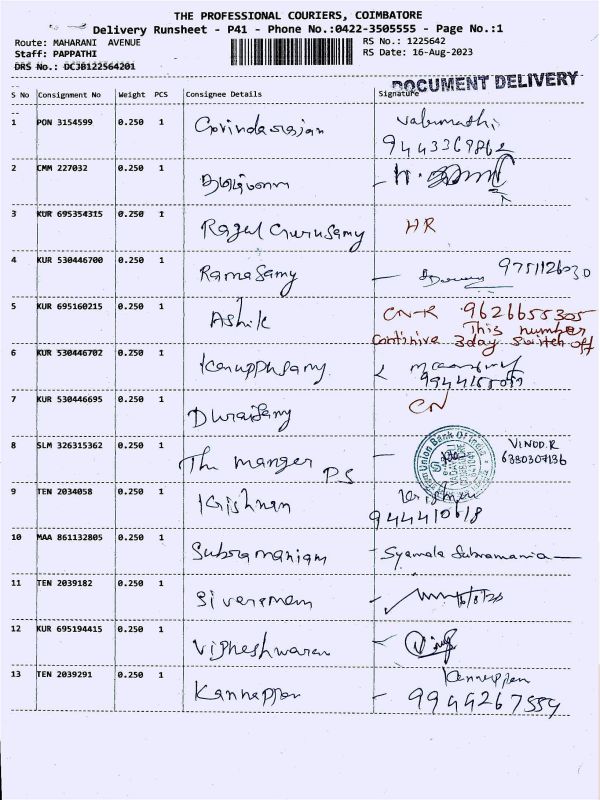 THE PROFESSIONAL COURIERS, COIMBATORE
Delivery Runsheet - P41 - Phone No.:0422-3505555 - Page No.:1
Route: MAHARANI AVENUE RS No.: 1225642
Staff: PAPPATHI RS Date: 16-Aug-2023
DRS No.: DCJB122564201
DOCUMENT DELIVERY
S No Consignment No Weight PCS Consignee Details Signature
1 PON 3154599 0.250 1 Govindarajan
9443369862
2 CMM 227032 0.250 1
3 KUR 695354315 0.250 1 Ragul Gurusamy HR
4 KUR 530446700 0.250 1 Ramasamy 9751126030
5 KUR 695160215 0.250 1 Ashik CN-R 9626655305
This number
continive 3day switch off
6 KUR 530446702 0.250 1 Karuppusamy
7 KUR 530446695 0.250 1 Duraisamy CN
8 SLM 326315362 0.250 1 The manger PS Union Bank Of India VINOD.R
6380307136
9 TEN 2034058 0.250 1 Krishnan
944410618
10 MAA 861132805 0.250 1 Subramaniam Syamala Subramania
11 TEN 2039182 0.250 1 Sivaramam 16/8/23
12 KUR 695194415 0.250 1 Vigheshwaran
13 TEN 2039291 0.250 1 Kannappan Kannappan
9944267554